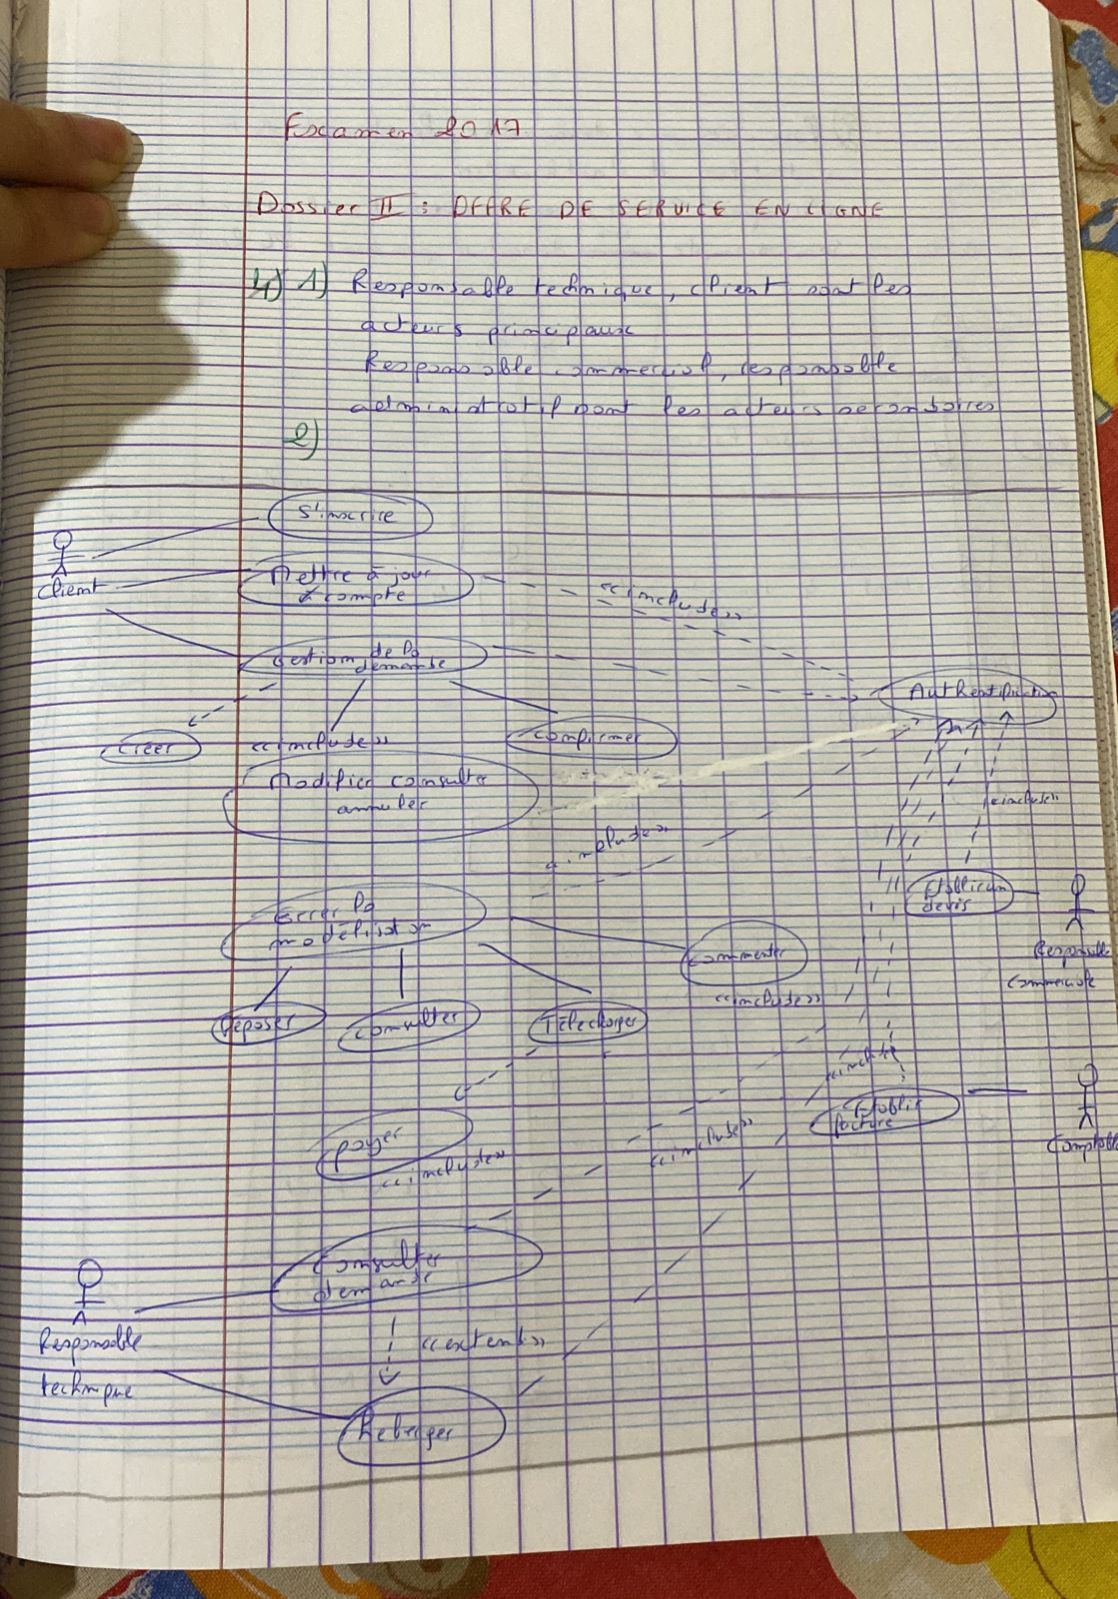 Examen 2017
Dossier II : OFFRE DE SERVICE EN LIGNE
4) 1) Responsable technique, client sont les
acteurs principaux
Responsable commercial, responsable
administratif sont les acteurs secondaires
2)
S'inscrire
Client
Mettre à jour
compte
<<include>>
Gestion de la
demande
Authentification
Créer
<<include>>
Confirmer
Modifier consulter
annuler
<<include>>
<<include>>
Etablir un
devis
Responsable
Commerciale
Gerer la
modélisation
Commenter
<<include>>
Déposer
Consulter
Télécharger
<<include>>
Etablir
facture
Comptable
payer
<<include>>
<<include>>
Consulter
demande
Responsable
technique
<<extend>>
heberger